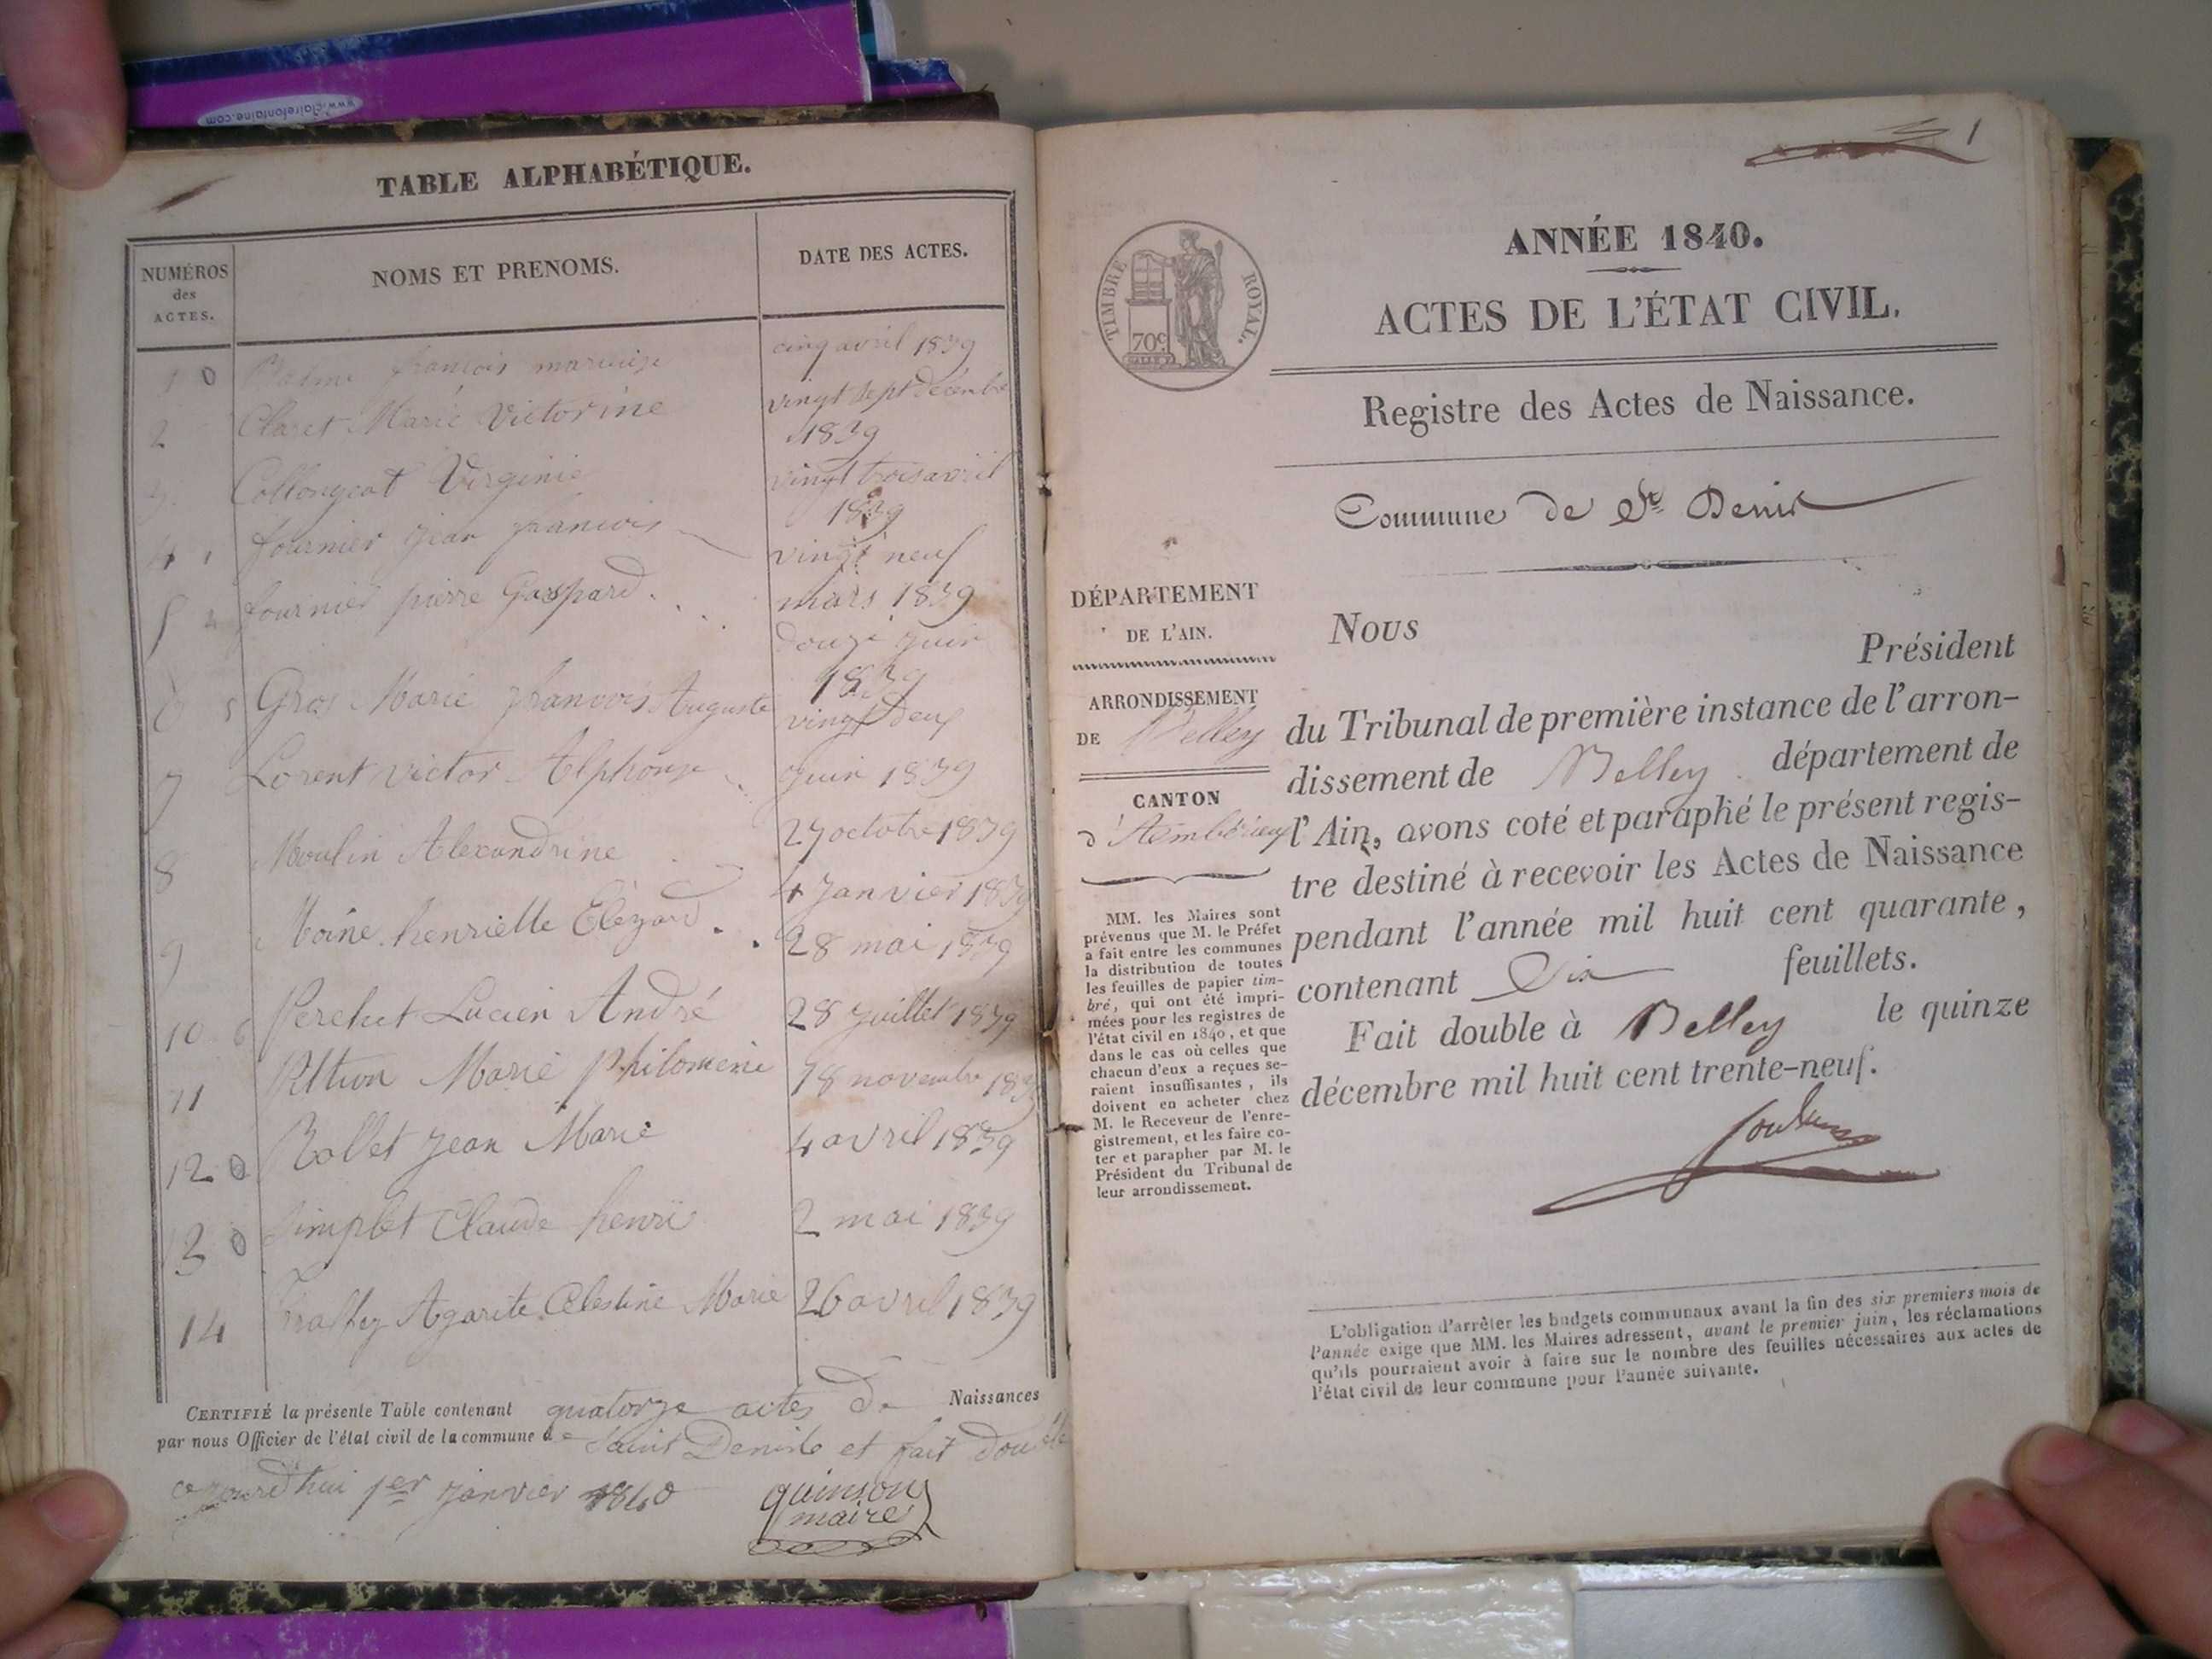 www.clairefontaine.com
TABLE ALPHABÉTIQUE.
NUMÉROS
des
ACTES.
NOMS ET PRENOMS.
DATE DES ACTES.
1 0 françois cinq avril 1839
2 Claret Marie Victorine vingt sept décembre
1839
Virginie vingt trois avril
1839
4 fournier jean francois vingt neuf
mars 1839
5 fournier pierre Gaspard
douze juin
1839
6 Gros Marie francois Auguste vingt deux
juin 1839
7 Lorent victor Alphonse
27 octobre 1839
8 Moulin Alexandrine
4 janvier 1839
9 Moine henriette
28 mai 1839
10 Lucien André 28 juillet 1839
11 Marie philomene 18 novembre 1839
12 0 Rollet jean Marie 4 avril 1839
13 0 Simplet Claude henri 2 mai 1839
14 Agarite Celestine Marie 26 avril 1839
CERTIFIÉ la présente Table contenant quatorze actes de Naissances
par nous Officier de l'état civil de la commune de Saint Denis et fait double
cejourd'hui 1er janvier 1840
quinson
maire
1
ANNÉE 1840.
ACTES DE L'ÉTAT CIVIL.
TIMBRE ROYAL.
70c.
Registre des Actes de Naissance.
Commune de St. Denis
DÉPARTEMENT
DE L'AIN.
ARRONDISSEMENT
DE Belley
CANTON
d'Ambérieux
MM. les Maires sont
prévenus que M. le Préfet
a fait entre les communes
la distribution de toutes
les feuilles de papier tim-
bré, qui ont été impri-
mées pour les registres de
l'état civil en 1840, et que
dans le cas où celles que
chacun d'eux a reçues se-
raient insuffisantes, ils
doivent en acheter chez
M. le Receveur de l'enre-
gistrement, et les faire co-
ter et parapher par M. le
Président du Tribunal de
leur arrondissement.
Nous
Président
du Tribunal de première instance de l'arron-
dissement de Belley département de
l'Ain, avons coté et paraphé le présent regis-
tre destiné à recevoir les Actes de Naissance
pendant l'année mil huit cent quarante,
contenant Six feuillets.
Fait double à Belley le quinze
décembre mil huit cent trente-neuf.
L'obligation d'arrêter les budgets communaux avant la fin des six premiers mois de
l'année exige que MM. les Maires adressent, avant le premier juin, les réclamations
qu'ils pourraient avoir à faire sur le nombre des feuilles nécessaires aux actes de
l'état civil de leur commune pour l'année suivante.